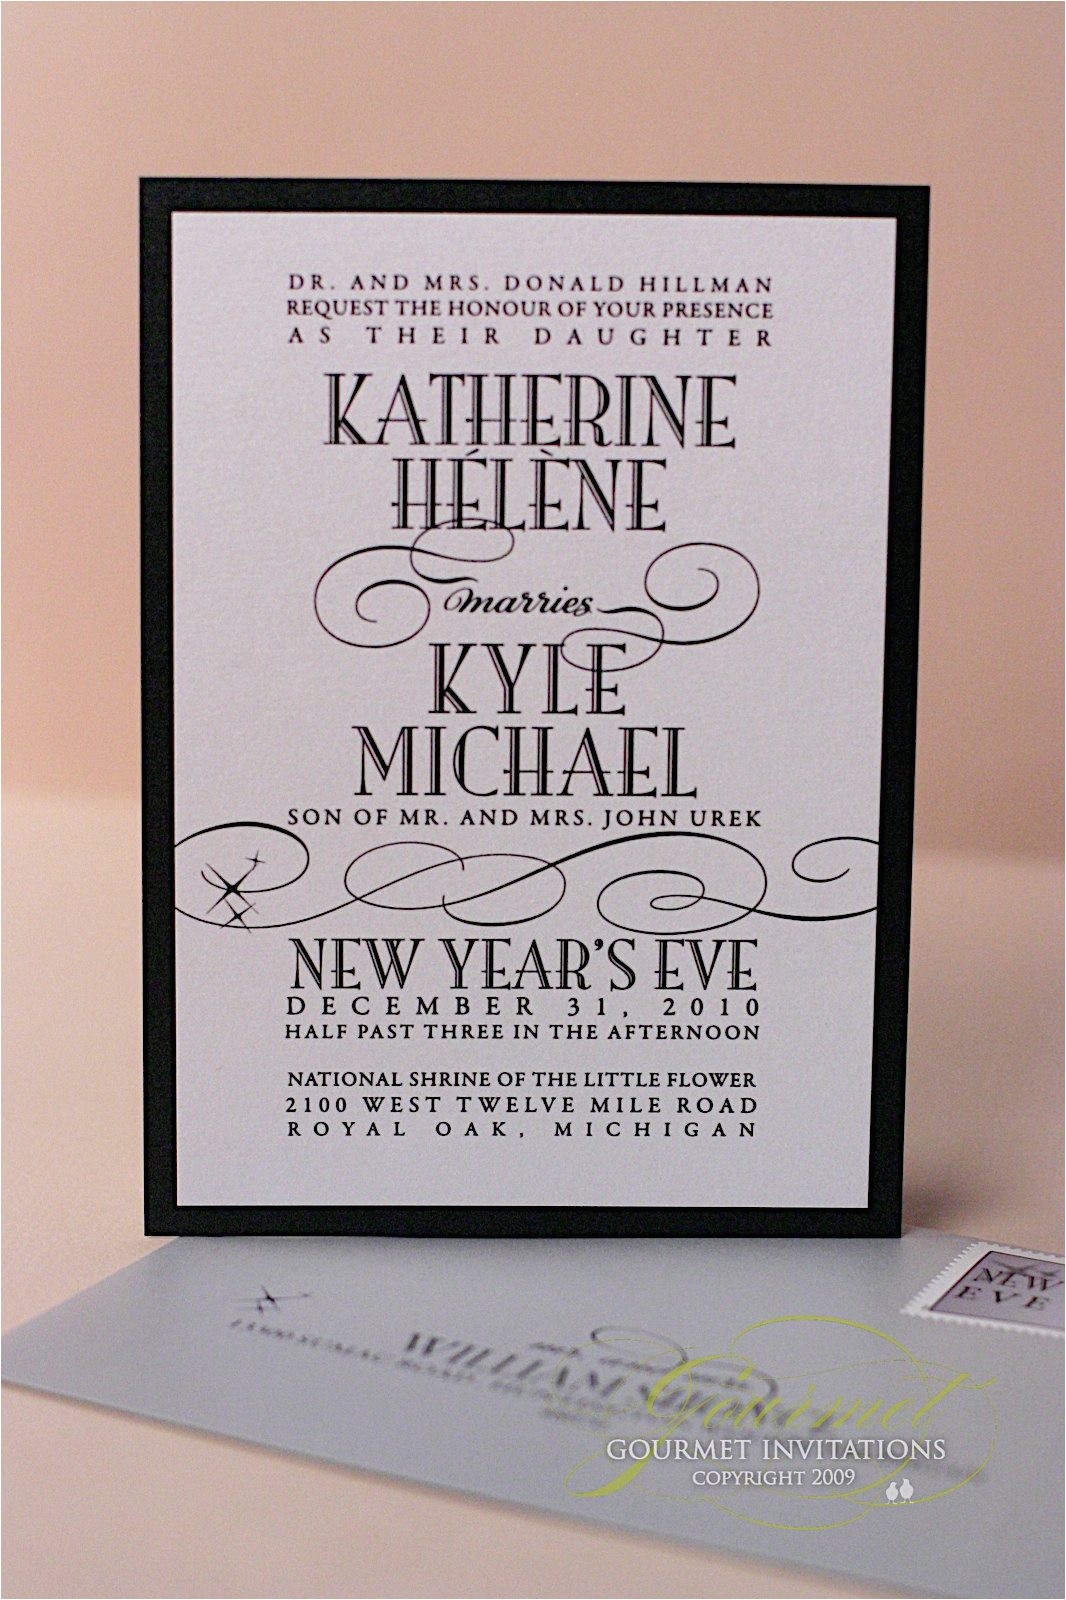 DR. AND MRS. DONALD HILLMAN
REQUEST THE HONOUR OF YOUR PRESENCE
AS THEIR DAUGHTER
KATHERINE
HÉLÈNE
marries
KYLE
MICHAEL
SON OF MR. AND MRS. JOHN UREK
NEW YEAR'S EVE
DECEMBER 31, 2010
HALF PAST THREE IN THE AFTERNOON
NATIONAL SHRINE OF THE LITTLE FLOWER
2100 WEST TWELVE MILE ROAD
ROYAL OAK, MICHIGAN
NEW
EVE
WILLIAM
Gourmet
GOURMET INVITATIONS
COPYRIGHT 2009